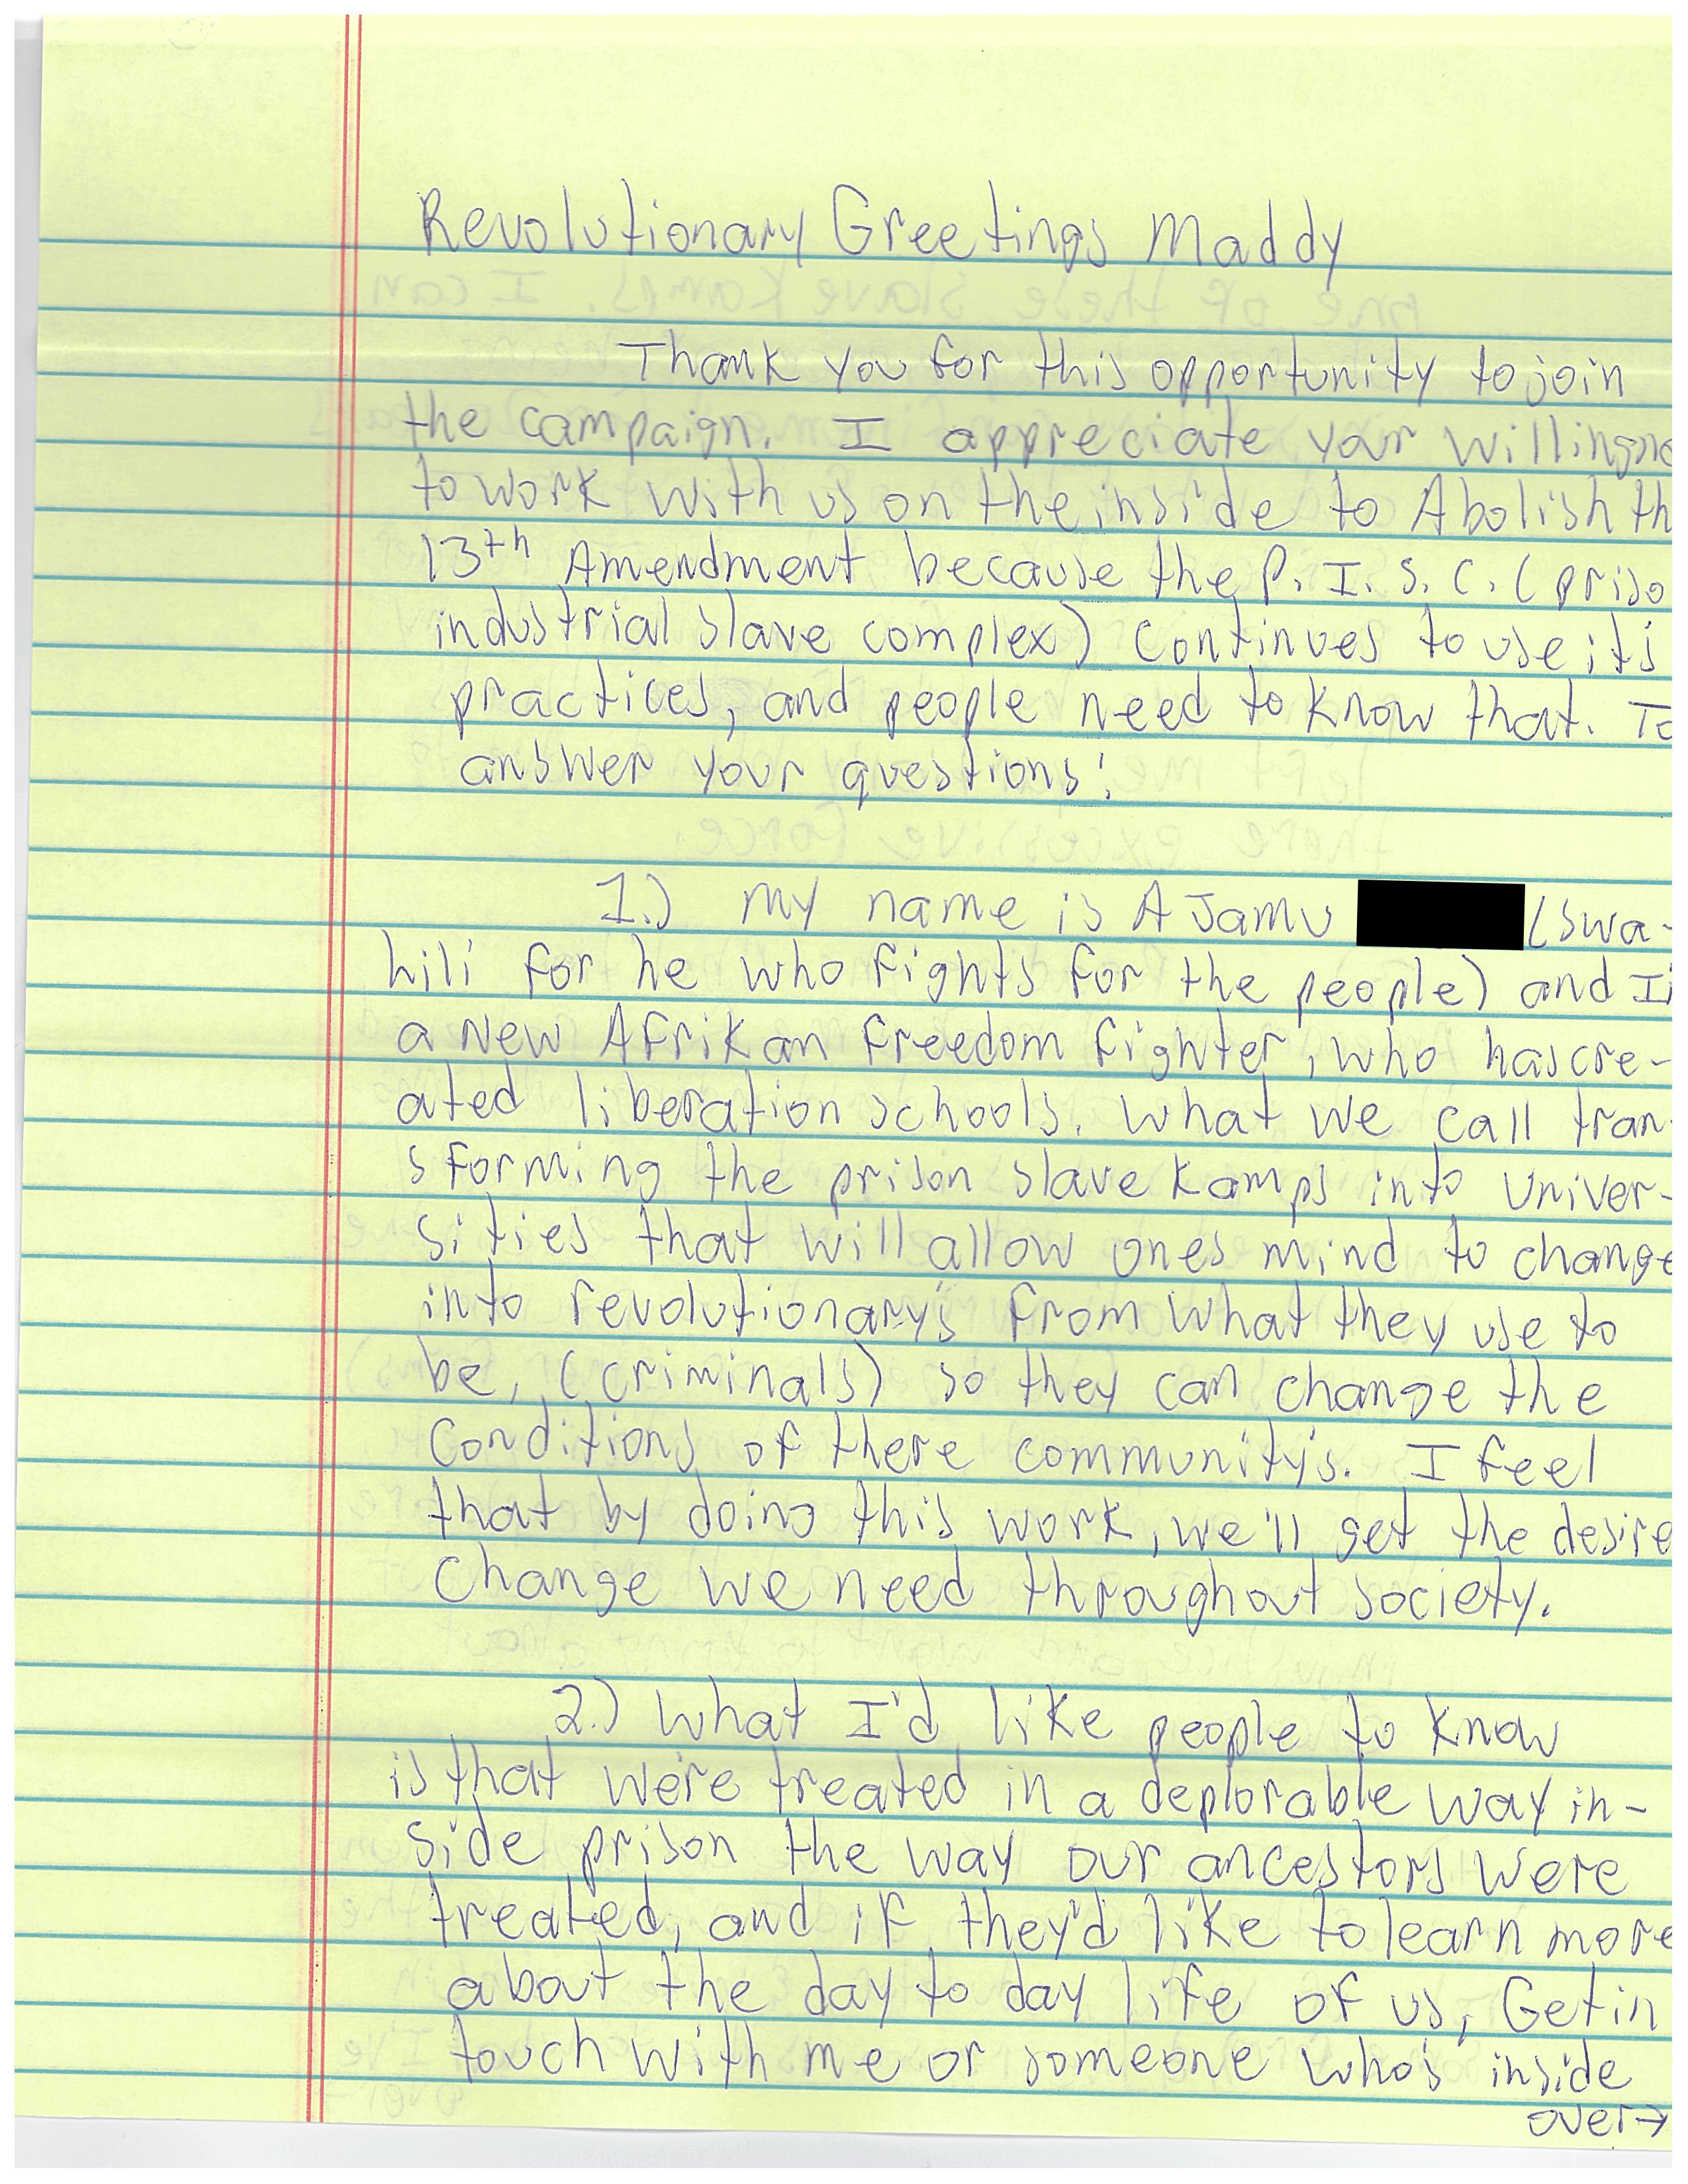 Revolutionary Greetings Maddy
Thank you for this opportunity to join
the campaign. I appreciate your willingne
to work with us on the inside to Abolish th
13th Amendment because the P. I. S. C. (priso
industrial slave complex) continues to use its
practices, and people need to know that. To
answer your questions:
1.) my name is AJamu (Swa-
hili for he who fights for the people) and I
a New Afrikan freedom fighter, who has cre-
ated liberation schools. What we call tran-
sforming the prison slave kamps into univer-
sities that will allow ones mind to change
into revolutionary's from what they use to
be, (criminals) so they can change the
conditions of there community's. I feel
that by doing this work, we'll get the desire
change we need throughout society.
2.) What I'd like people to know
is that we're treated in a deplorable way in-
side prison the way our ancestors were
treated, and if they'd like to learn more
about the day to day life of us, Get in
touch with me or someone who's inside
over→